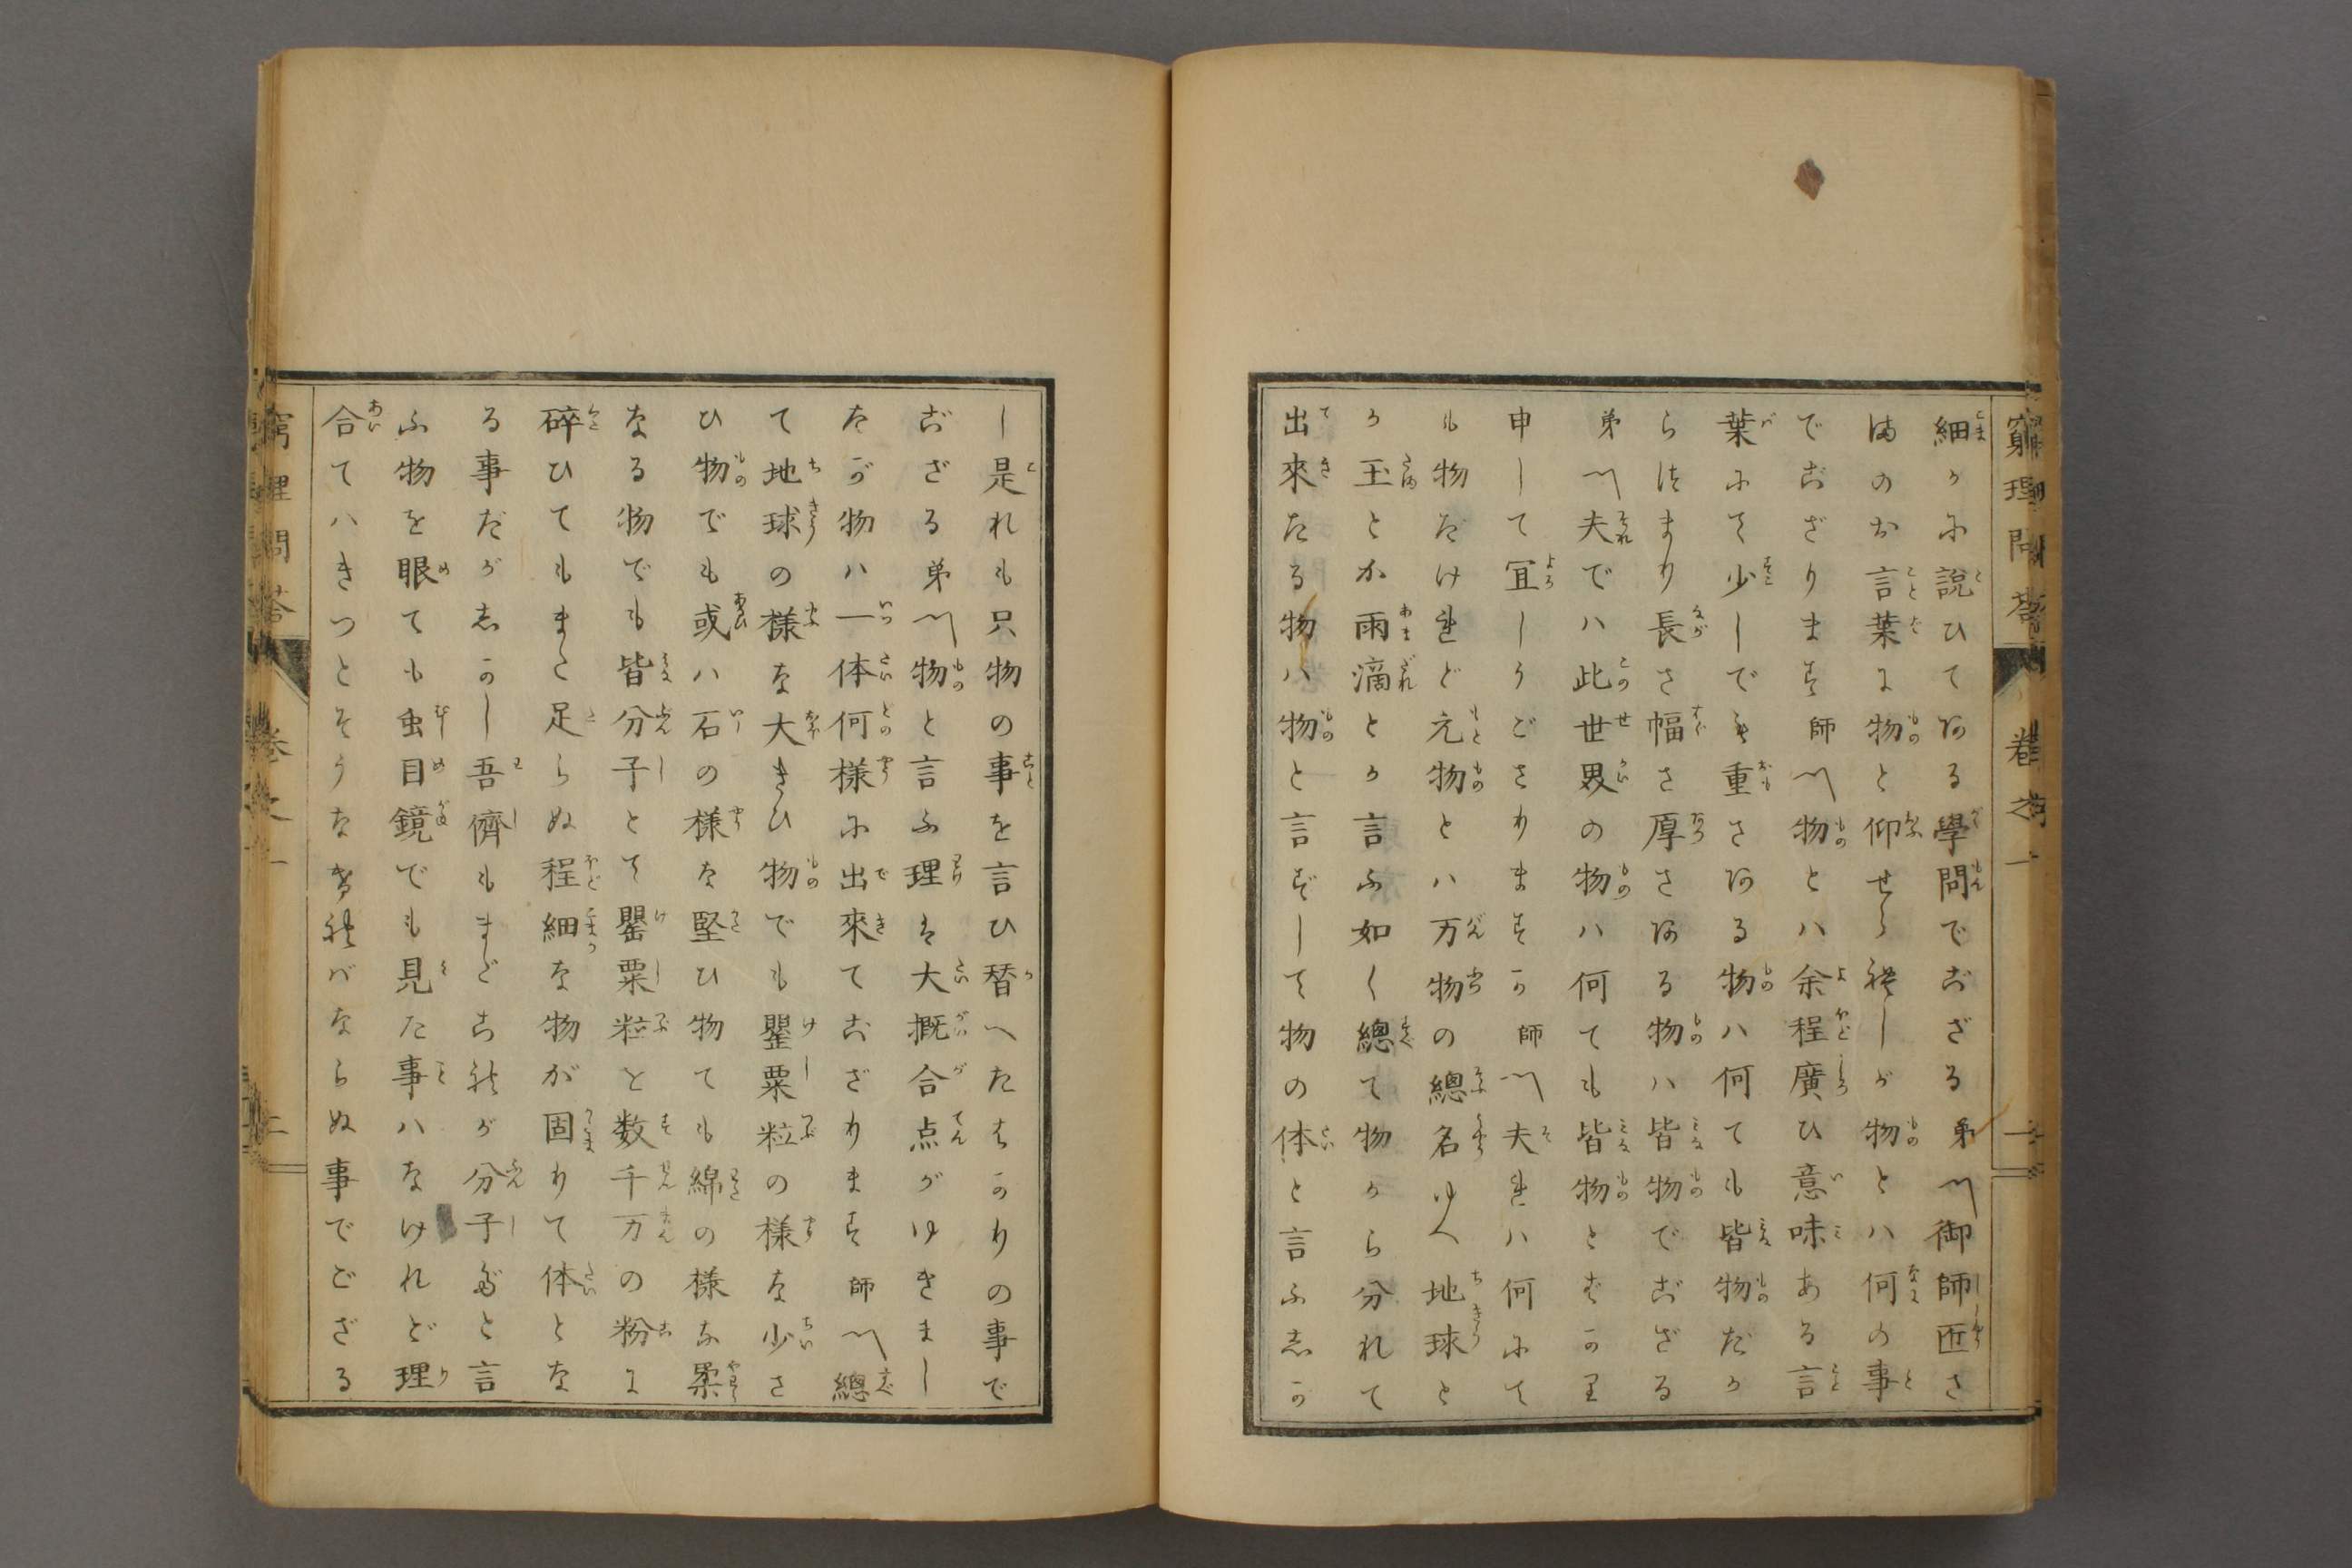 窮理問荅 卷之一 一
細かに説ひてある學問でござる弟〽御師匠さ
まのお言葉に物と仰せられしが物とハ何の事
でござります師〽物とハ余程廣ひ意味ある言
葉にて少しでも重さある物ハ何ても皆物だか
らつまり長さ幅さ厚さある物ハ皆物でござる
弟〽夫でハ此世界の物ハ何ても皆物とばかり
申して冝しうござりますか師〽夫れハ何にて
も物だけれど元物とハ万物の總名ゆへ地球と
か玉とか雨滴とか言ふ如く總て物から分れて
出來たる物ハ物と言ずして物の体と言ふしか
し是れも只物の事を言ひ替へたはかりの事で
ござる弟〽物と言ふ理は大概合点がゆきまし
たが物ハ一体何様に出來てござります師〽總
て地球の様な大きひ物でも罌粟粒の様な少さ
ひ物でも或ハ石の様な堅ひ物ても綿の様な柔
なる物でも皆分子とて罌粟粒を数千万の粉に
碎ひてもまた足らぬ程細な物が固りて体とな
る事だがしかし吾儕もまだこれが分子だと言
ふ物を眼ても虫目鏡でも見た事ハなけれど理
合てハきつとそうなければならぬ事でござる
窮理問荅 卷之一 二